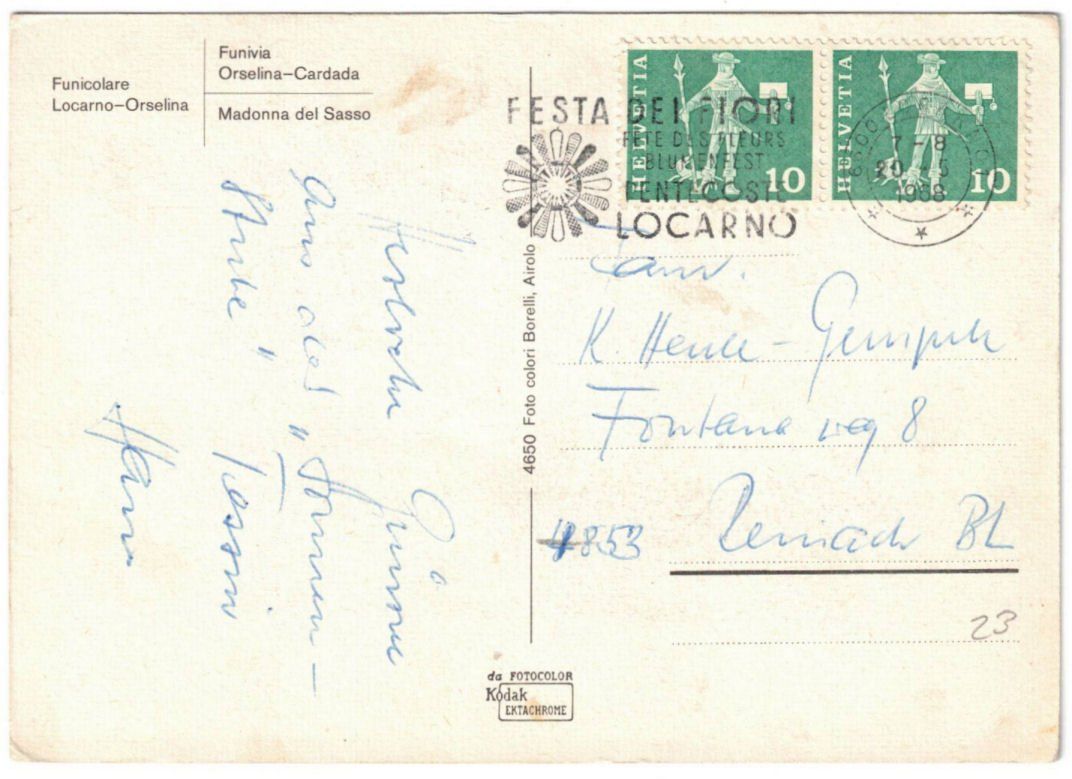 Funicolare
Locarno–Orselina
Funivia
Orselina–Cardada
Madonna del Sasso
HELVETIA 10
HELVETIA 10
FESTA DEI FIORI
FÊTE DES FLEURS
BLUMENFEST
PENTECOSTE
LOCARNO
7–8
20
1968
Herzliche Grüsse
Aus der "Sonnen–
Stube" Tessin
Hans
4650 Foto colori Borelli, Airolo
Fam.
K. Henle – 
Fontanaweg 8
4853 Reinach BL
23
da FOTOCOLOR
Kodak
EKTACHROME